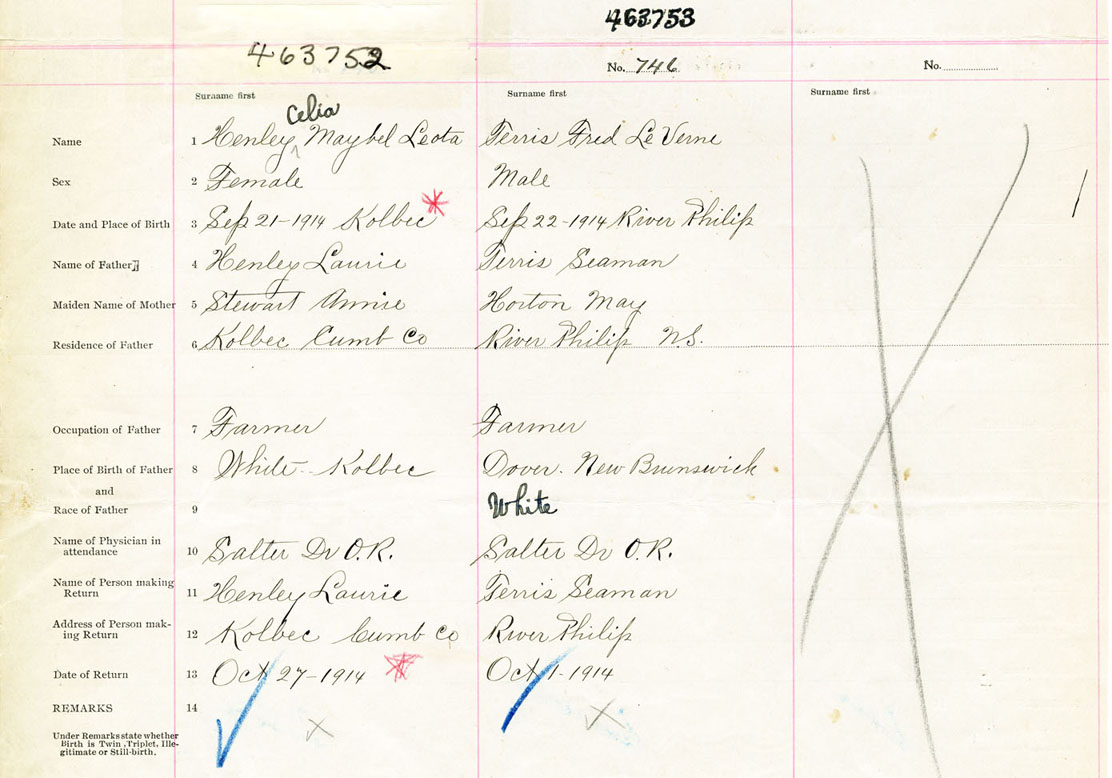 463753
463752
No. 746
No.
Surname first
Surname first
Surname first
Celia
Name 1 Henley Maybel Leota Terris Fred Le Verne
Sex 2 Female Male
Date and Place of Birth 3 Sep 21-1914 Kolbec Sep 22-1914 River Philip
Name of Father 4 Henley Laurie Terris Seaman
Maiden Name of Mother 5 Stewart Annie Horton May
Residence of Father 6 Kolbec Cumb Co River Philip N.S.
Occupation of Father 7 Farmer Farmer
Place of Birth of Father 8 White - Kolbec Dover. New Brunswick
and
Race of Father 9 White
Name of Physician in
attendance 10 Salter Dr O.R. Salter Dr O.R.
Name of Person making
Return 11 Henley Laurie Terris Seaman
Address of Person mak-
ing Return 12 Kolbec Cumb Co River Philip
Date of Return 13 Oct 27-1914 Oct 1-1914
REMARKS 14
Under Remarks state whether
Birth is Twin, Triplet, Ille-
gitimate or Still-birth.